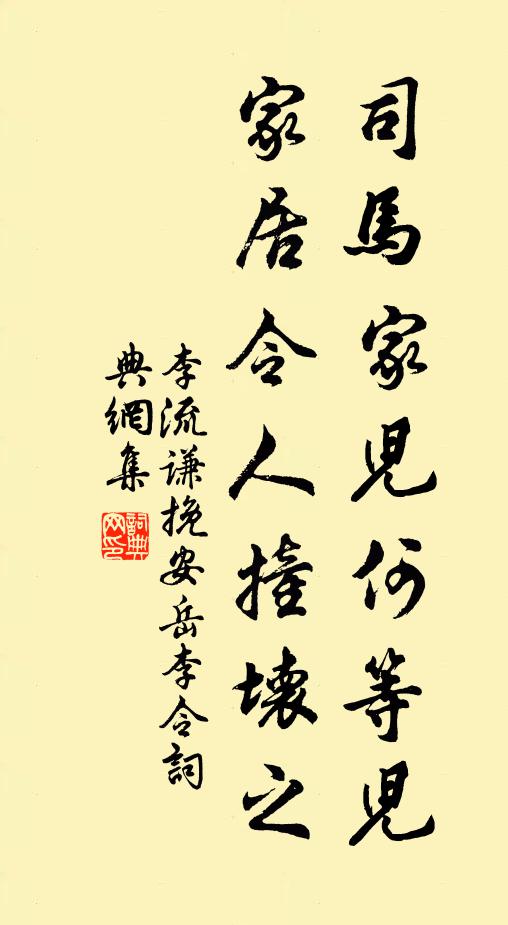 司馬家兒何等兒
家居令人撞壞之
李流謙挽安岳李令詞
典網集
詞典